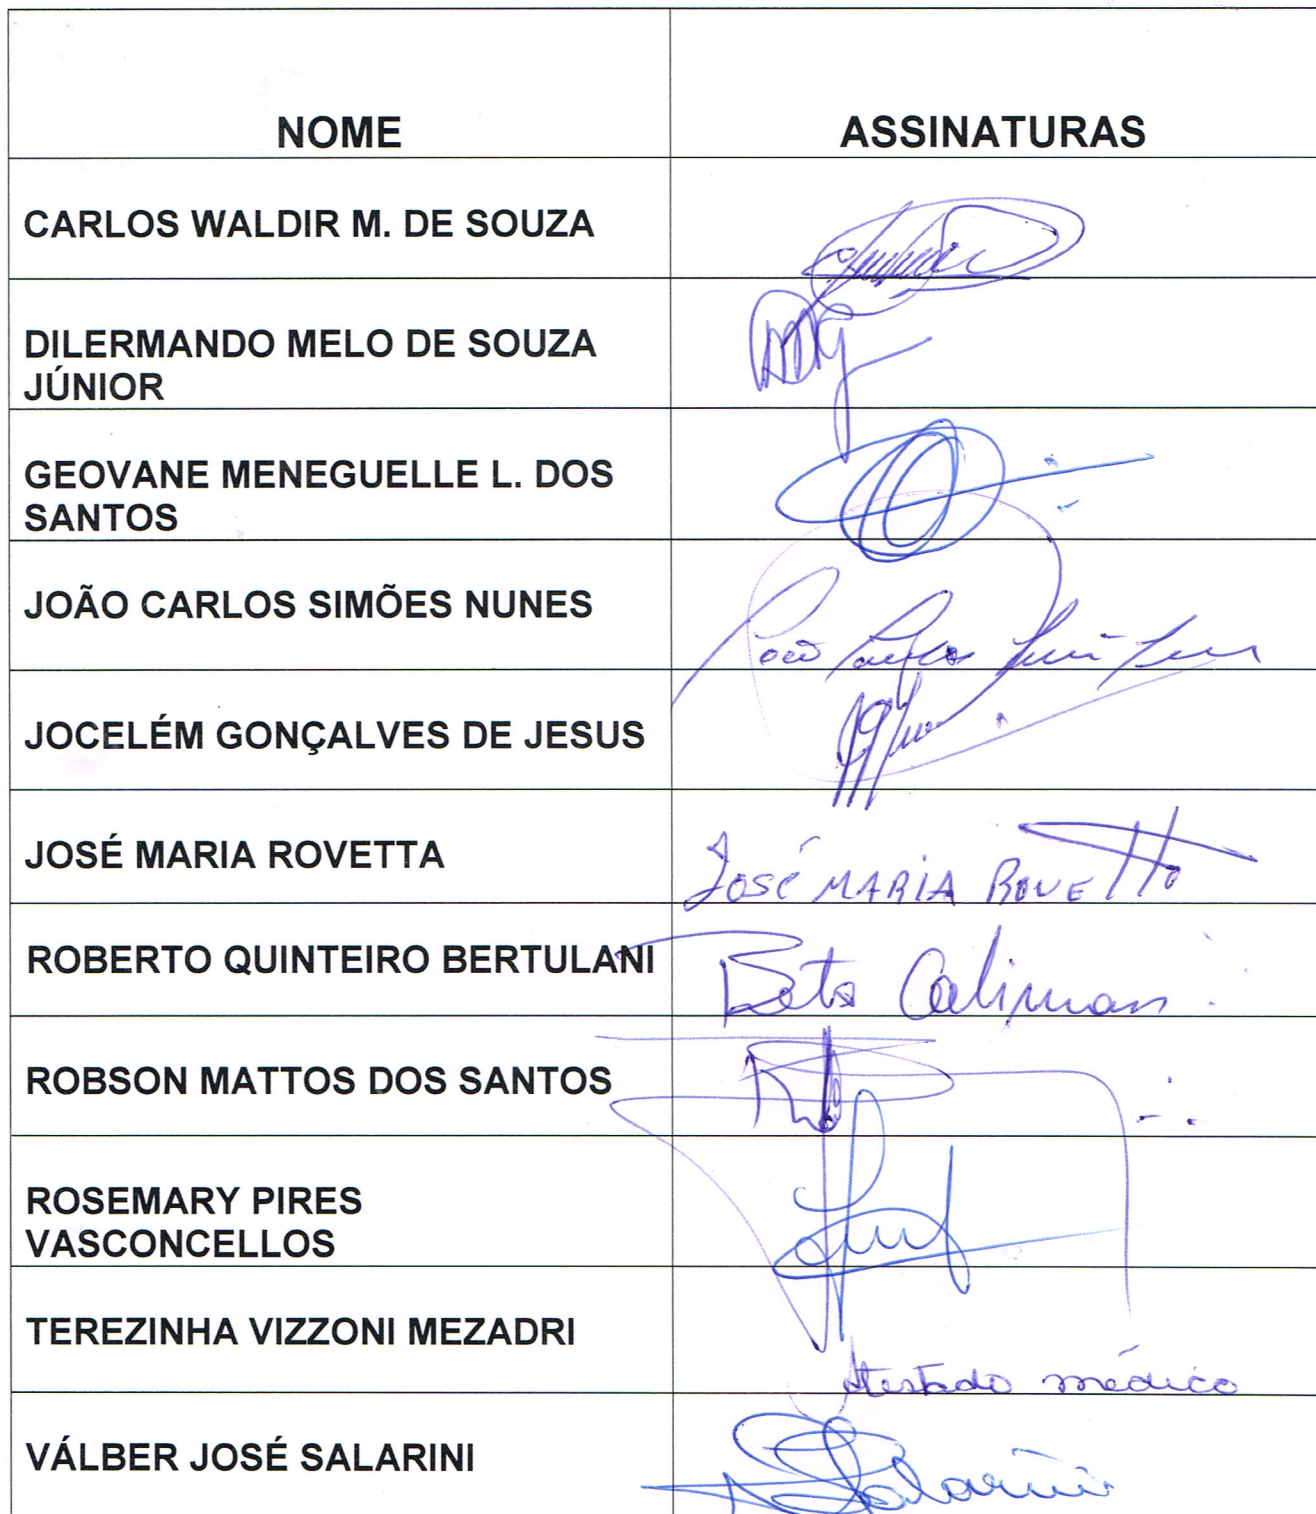 NOME
ASSINATURAS
CARLOS WALDIR M. DE SOUZA
DILERMANDO MELO DE SOUZA
JÚNIOR
GEOVANE MENEGUELLE L. DOS
SANTOS
JOÃO CARLOS SIMÕES NUNES
João Carlos
JOCELÉM GONÇALVES DE JESUS
JOSÉ MARIA ROVETTA
JOSÉ MARIA ROVETTA
ROBERTO QUINTEIRO BERTULANI
Beto Caliman
ROBSON MATTOS DOS SANTOS
ROSEMARY PIRES
VASCONCELLOS
TEREZINHA VIZZONI MEZADRI
Atestado médico
VÁLBER JOSÉ SALARINI
Salarini